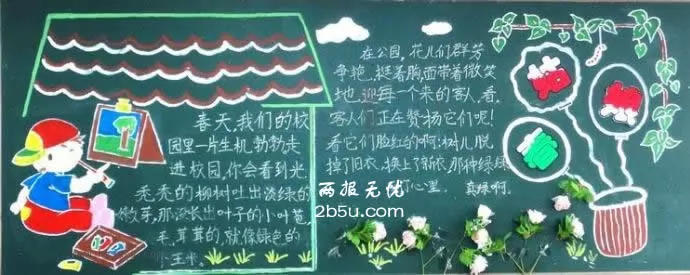 春天，我们的校
园里一片生机勃勃走
进校园，你会看到光
秃秃的柳树吐出淡绿的
嫩芽，那没长出叶子的小叶苞
毛茸茸的，就像绿色的
小玉米
在公园，花儿们群芳
争艳，挺着胸，面带着微笑
地，迎每一个来的客人，看，
客人们正在赞扬它们呢！
看它们脸红的啊；树儿脱
掉了旧衣，换上了新衣，那种绿绿
了心里，真绿啊。
两报无忧
2b5u.com